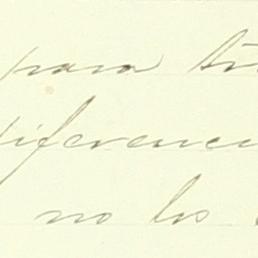 para
diferenci
no los